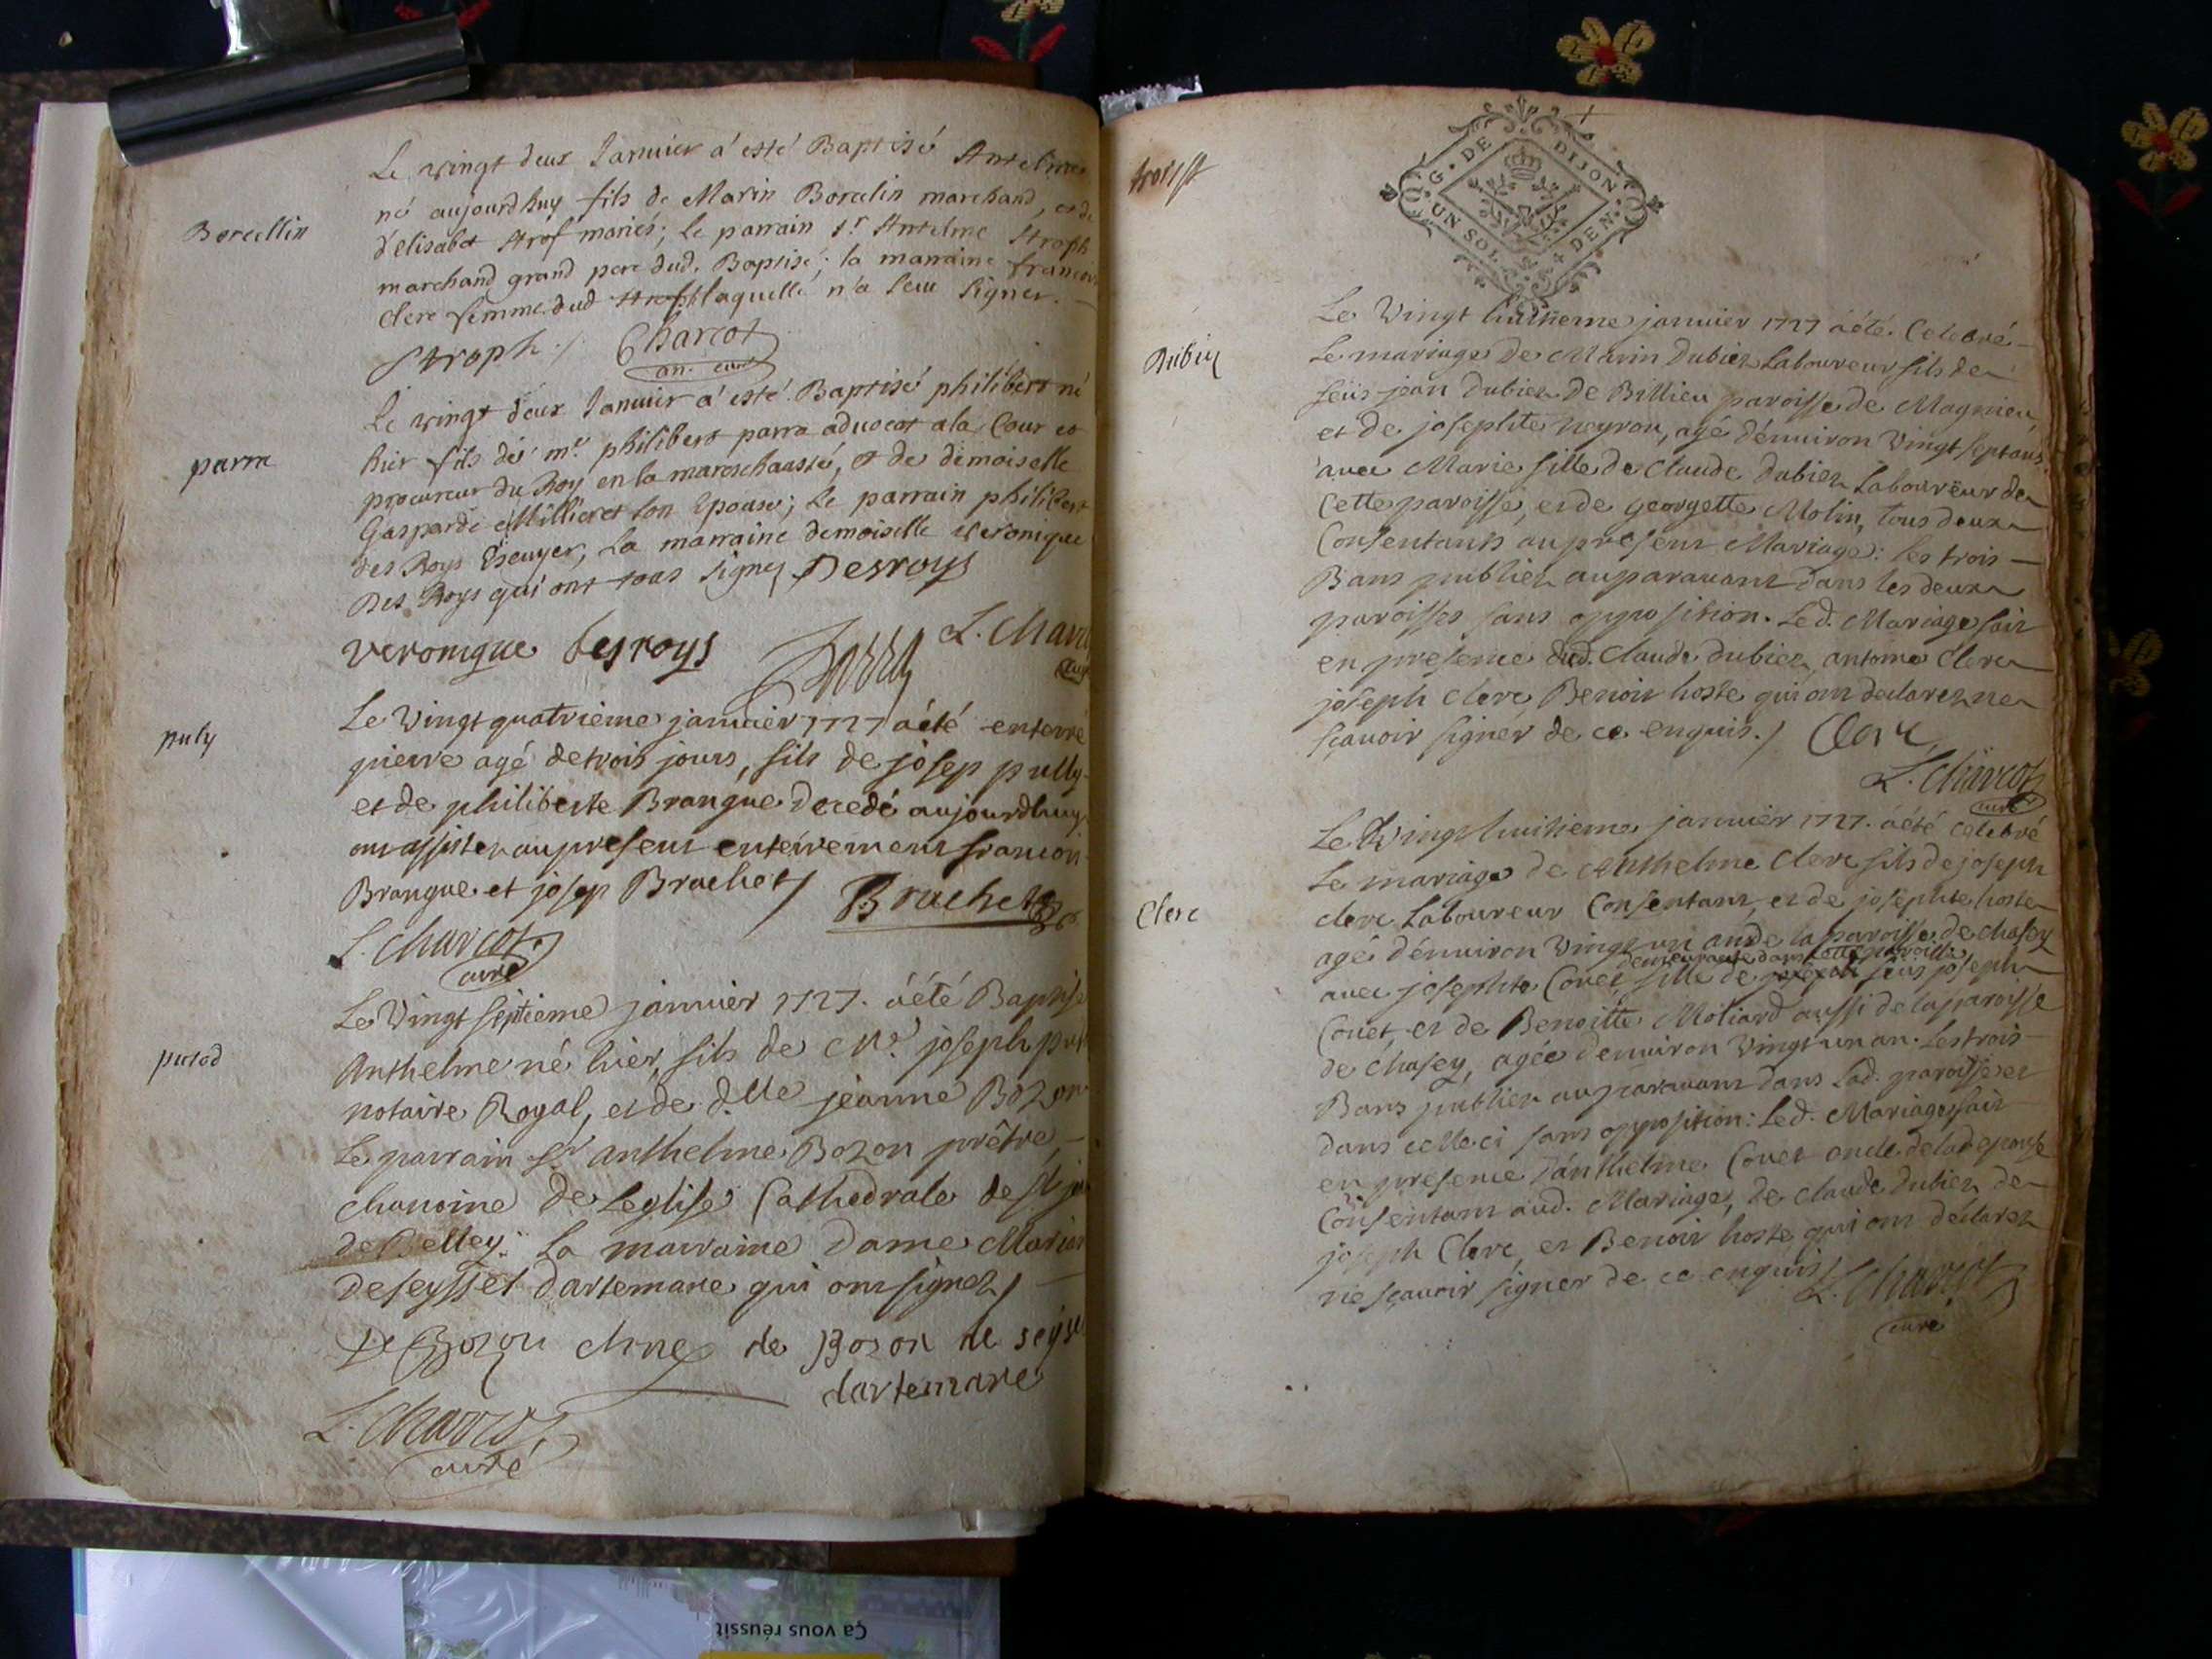 Le vingt deux Januier a' esté Baptisé Antelme
né aujourdhuy fils de Marin Borcelin marchand, et de
Borcellin
d'elisabet Strof mariés; le parrain Sr Antelme Stroph
marchand grand pere dud. Baptisé; la marraine francoise
clerc femme dud Stroph laquelle n'a sceu signer.
Stroph ./. Charcot
an. curé
Le vingt deux Januier a' esté Baptisé philibert né
hier fils de mr. philibert parra aduocat a la Cour et
parra
procureur du Roy en la mareschaussée, et de demoiselle
Gasparde Millieret son Epouse; Le parrain philibert
des Roys Escuyer, La marraine demoiselle Veronique
Des Roys qui ont tous signez Desroys
veronique desroys Parra L. Charcot
curé
Le Vingt quatrième januier 1727 a été enterré
puly
pierre agé de trois jours, fils de josep pully
et de philiberte Brangue decedé aujourdhuy
ont assistez au present enterrement francois
Brangue et josep Brachet / Brachet
L. Charcot
curé
Le Vingt septieme januier 1727. a été Baptisé
Anthelme né hier, fils de Me. joseph
notaire Royal, et de d.lle jeanne Bozon
Le parrain Sr anthelme Bozon prêtre,
chanoine de Leglise Cathedrale de St jean
de Belley: La marraine Dame Marie
deseyssel dartemare qui ont signez /
De Bozon chne de Bozon de seyssel
dartemare
L. Charcot
curé
G. DE DIJON
UN SOL 4 DEN.
Le Vingt huitieme januier 1727 a été. Celebré
Le mariage de Marin Dubiez Laboureur fils de
Dubiez
feus jean Dubiez de Billieu paroisse de Magnieu,
et de josephte neyrou, agé d'enuiron Vingt sept ans
auec Marie fille de Claude dubiez Laboureur de
Cette paroisse, et de georgette Molin, tous deux
Consentants au present Mariage: les trois
Bans publiez auparauant dans les deux
paroisses sans opposition. Led. Mariage fait
en presence dud. Claude dubiez, antoine Clerc
joseph clerc, Benoit hoste qui ont declarez ne
sçauoir signer de ce enquis. / Clerc
L. Charcot
curé
Le Vingt huitieme januier 1727. a été celebré
Le mariage de Anthelme Clerc fils de joseph
clerc Laboureur Consentant, et de josephte hoste
Clerc
agé d'enuiron Vingt un an de la paroisse de chasey
demeurante dans cette paroisse
auec josephte Couet, fille de feus joseph
Couet, et de Benoitte Moliard aussi de la paroisse
de Chasey, agée d'enuiron Vingt un an. Les trois
Bans publiez auparauant dans Lad. paroisse et
dans celle ci sans opposition: Led. Mariage fait
en presence d'anthelme Couet oncle de lad epouse
Consentant aud. Mariage, de claude dubiez de
joseph Clerc, et Benoit hoste qui ont declarez
ne sçauoir signer de ce enquis / L. Charcot
curé
Ça vous réussit